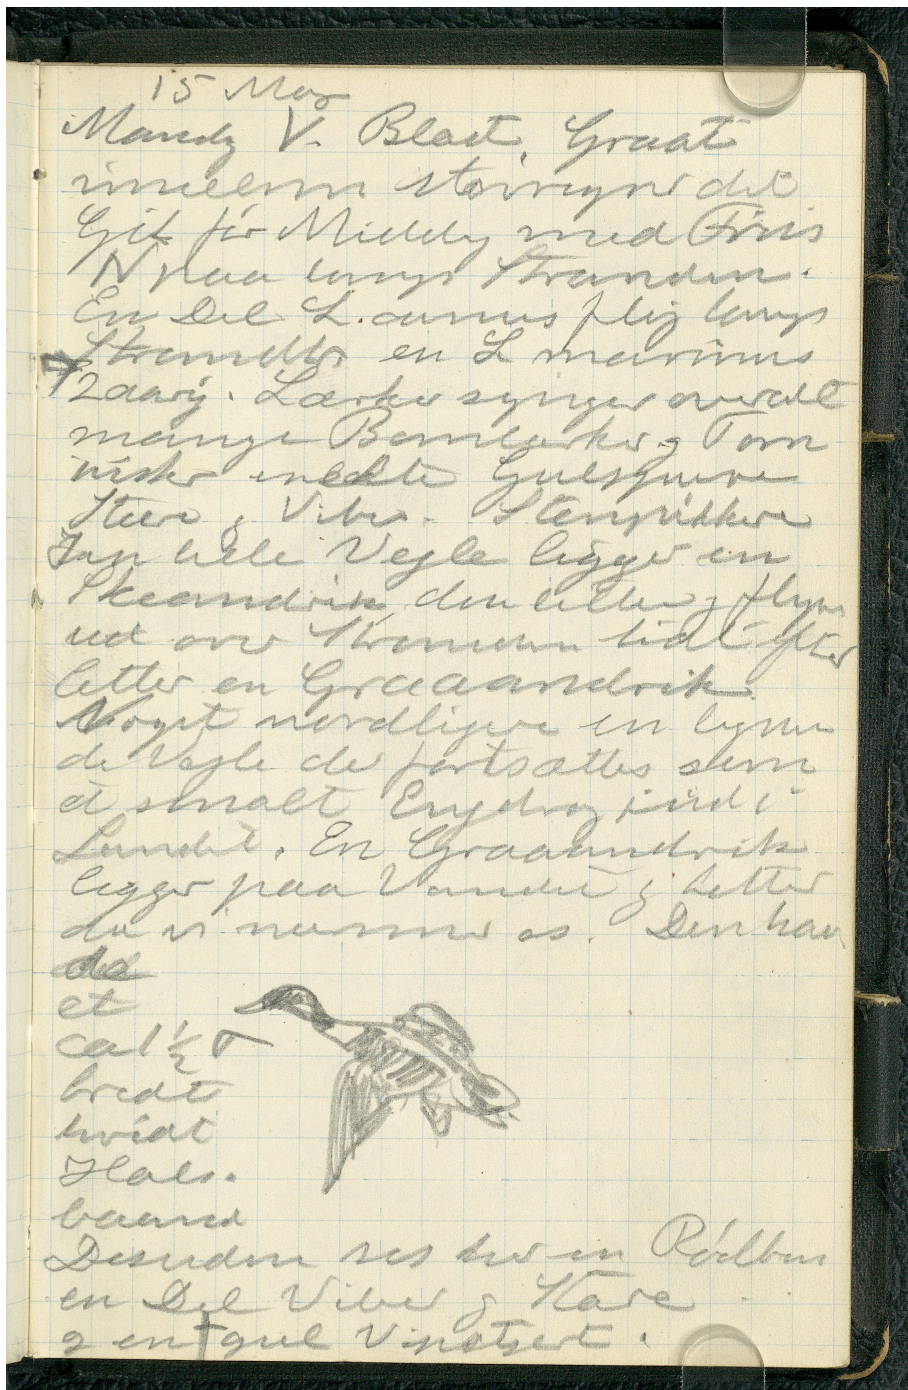 15 Maj
Mandg V. Blæst, Graat
imellem støvregner det
Gik før Middg med Friis
N paa langs Stranden.
En Del L. canus fløj langs
Strandbr en L marinus
2aarig. Lærker synger overalt
mange Bomlærker og Torn
irisker enkelte Gulspurve
Stære og Viber. Stenpikkere
I hele Vejle ligger en
Skeandrik, den letter og flyver
ud over Stranden lidt efter
letter en Graaandrik
Noget nordligere en lignen
de Vejle der fortsættes som
et smalt Engdrag ind i
Landet. En Graaandrik
ligger paa Vandet og letter
da vi nærmer os. Den har
et
ca 1 1/2
bredt
hvidt
Hals.
baand
Desuden ses her en Rødben
en Del Viber og Stære
og en gul Vipstjert.